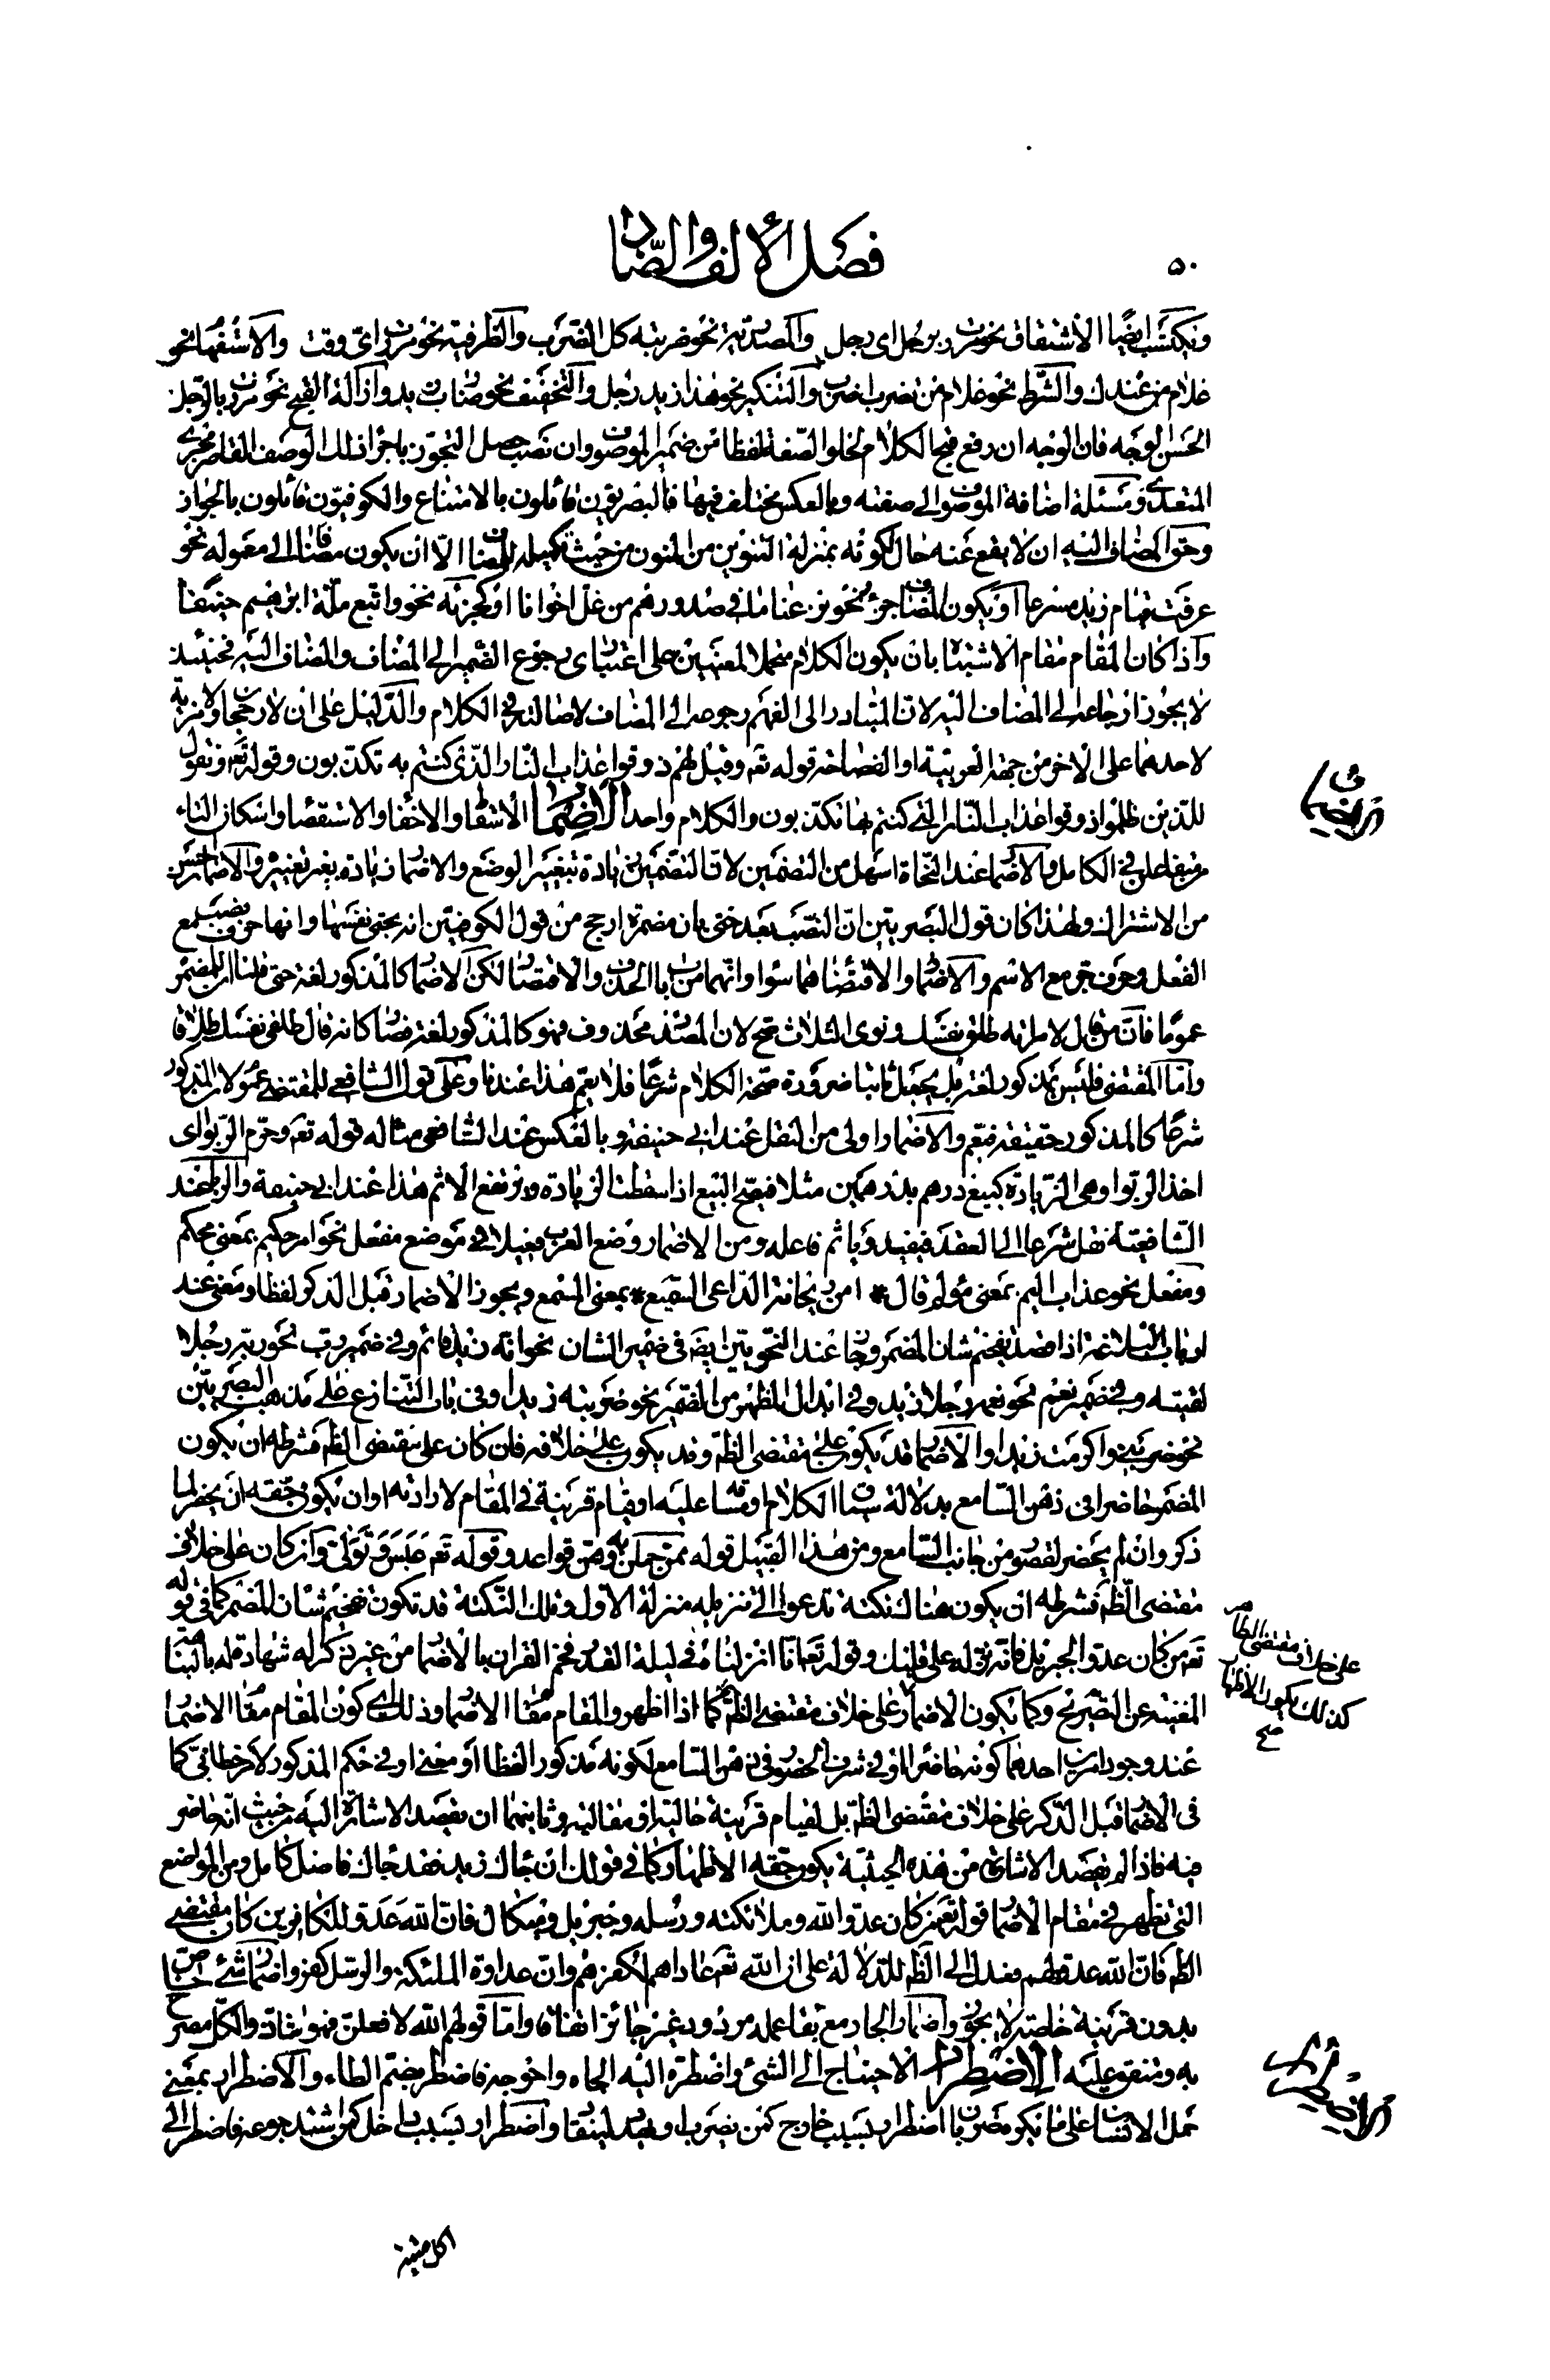 ٥٠
فصل الألف والضاد
ويكتسب ايضا الاشتقاق نحو مررت برجل اى رجل والمصدرية نحو ضربته كل الضرب والظرفية نحو مررت اى وقت والاستفهام نحو
غلام من عندك والشرط نحو غلام من تضرب اضرب والتنكير نحو هذا زيد رجل والتخفيف نحو ضارب زيد وازالة القبح نحو مررت بالرجل
الحسن الوجه فان الوجه ان رفع قبح الكلام لخلو الصفة لفظا من ضمير الموصوف وان نصب حصل التجوز باجرائك الوصف القاصر مجرى
المتعدى ومسئلة اضافة الموصوف الى صفته وبالعكس مختلف فيها فالبصريون قائلون بالامتناع والكوفيون قائلون بالجواز
وحق المضاف اليه ان لا يقع عنه حال لكونه بمنزلة التنوين من المنون من حيث تكميله للمضاف الا ان يكون مضافا الى معموله نحو
عرفت قيام زيد مسرعا او يكون المضاف جزئه نحو ونزعنا ما فى صدورهم من غل اخوانا او كجزئه نحو واتبع ملة ابرهيم حنيفا
واذا كان المقام مقام الاشتباه بان يكون الكلام محمل المعنيين على اعتبارى رجوع الضمير الى المضاف والمضاف اليه فحينئذ
لا يجوز ارجاعه الى المضاف اليه لان المتبادر الى الفهم رجوعه الى المضاف لاصالته فى الكلام والدليل على ان لا رجحان ولا مزية
لاحدهما على الاخر من جهة العربية او الفصاحة قوله تعم وقيل لهم ذوقوا عذاب النار الذى كنتم به تكذبون وقوله تعم ونقول
للذين ظلموا ذوقوا عذاب النار التى كنتم بها تكذبون والكلام واحد الاضمار الاسقاط والاخفاء والاستقصاء واسكان التاء
من متفاعلن فى الكامل والاضمار عند النحاة اسهل من التضمين لان التضمين زيادة بتغيير الوضع والاضمار زيادة بغير تغيير والاضمار احسن
من الاشتراك ولهذا كان قول البصريين ان النصب بعد حتى بان مضمرة ارجح من قول الكوفيين انه بحتى نفسها وانها حرف نصب مع
الفعل وحرف جر مع الاسم والاضمار والاقتضاء هما سواء وانهما من باب الحذف والاقتصار لكن الاضمار كالمذكور لغة حتى قلنا ان للمضمر
عموما فان من قال لامراته طلقى نفسك ونوى الثلاث صح لان المصدر محذوف فهو كالمذكور لغة فصار كانه قال طلقى نفسك طلاقا
واما المقتضى فليس بمذكور لغة بل يجعل ثابتا ضرورة صحة الكلام شرعا فلا يعم هذا عندنا وعلى قول الشافعى للمقتضى عموم لان المذكور
شرعا كالمذكور حقيقة فيعم والاضمار اولى من النقل عند ابى حنيفة وبالعكس عند الشافعى مثاله قوله تعم وحرم الربوا اى
اخذ الربوا وهى الزيادة كبيع درهم بدرهمين مثلا فيصح البيع اذا سقطت الزيادة ويرتفع الاثم هذا عند ابى حنيفة والربا عند
الشافعية نقل شرعا الى العقد فيفسد وياثم فاعله ومن الاضمار وضع العرب فعيلا فى موضع مفعل نحو امر حكيم بمعنى محكم
ومفعل نحو عذاب اليم بمعنى مؤلم قال * امن ريحانة الداعى السميع * بمعنى المسمع ويجوز الاضمار قبل الذكر لفظا ومعنى عند
ارباب البلاغة اذا قصد تفخيم شان المضمر وجاز عند النحويين ايضا فى ضمير الشان نحو انه زيد قائم وفى ضمير رب نحو ربه رجلا
لقيته وفى ضمير نعم نحو نعم رجلا زيد وفى ابدال المظهر من الضمير نحو ضربته زيدا وفى باب التنازع على مذهب البصريين
نحو ضربنى واكرمت زيدا والاضمار قد يكون على مقتضى الظم وقد يكون على خلافه فان كان على مقتضى الظم فشرطه ان يكون
المضمر حاضرا فى ذهن السامع بدلالة سياق الكلام او مساقه عليه او قيام قرينة فى المقام لارادته او ان يكون حقه ان يحضر لما
ذكر وان لم يحضر لقصور من جانب السامع ومن هذا القبيل قوله ممن حملن به وهن قواعد وقوله تعم عبس وتولى وان كان على خلاف
مقتضى الظم فشرطه ان يكون هناك نكتة تدعو الى تنزيله منزلة الاول وتلك النكتة قد تكون تفخيم شان المضمر كما فى قوله
تعم من كان عدوا لجبريل فانه نزله على قلبك وقوله تعم انا انزلناه فى ليلة القدر فخم القران بالاضمار من غير ذكر له شهادة له بالنباهة
المغنية عن التصريح وكما يكون الاضمار على خلاف مقتضى الظم كما اذا اظهر والمقام مقام الاضمار وذلك اى كون المقام مقام الاضمار
عند وجود امرين احدهما كونه حاضرا او فى شرف الحضور فى ذهن السامع لكونه مذكورا لفظا او معنى او فى حكم المذكور لامر خطابى كما
فى الاضمار قبل الذكر على خلاف مقتضى الظم بل لقيام قرينة حالية او مقالية وثانيهما ان يقصد الاشارة اليه من حيث انه حاضر
فيه فاذا لم يقصد الاشارة من هذه الحيثية يكون حقه الاظهار كما فى قولك ان جاءك زيد فقد جاءك فاضل كامل ومن المواضع
التى تظهر فى مقام الاضمار قوله تعم من كان عدوا لله وملائكته ورسله وجبريل وميكال فان الله عدو للكافرين كان مقتضى
الظم فان الله عدو لهم فعدل الى الظم للدلالة على ان الله تعم عاداهم لكفرهم وان عداوة الملئكة والرسل كفر واضمار شئ خاص
بدون قرينة خاصة لا يجوز واضمار الجار مع بقاء عمله مردود غير جائز اتفاقا واما قولهم الله لافعلن فهو شاذ والكل مصرح
به ومتفق عليه الاضطرار الاحتياج الى الشئ واضطره اليه الجاءه واحوجه فاضطر بضم الطاء والاضطرار بمعنى
حمل الانسان على ما يكره ضربان اضطرار بسبب خارج كمن يضرب او يهدد لينقاد واضطرار بسبب داخل كمن اشتد جوعه فاضطر الى
الاضمار
على خلاف مقتضى الظاهر
كذلك يكون الاظهار
صح
الاضطرار
اكل ميتة